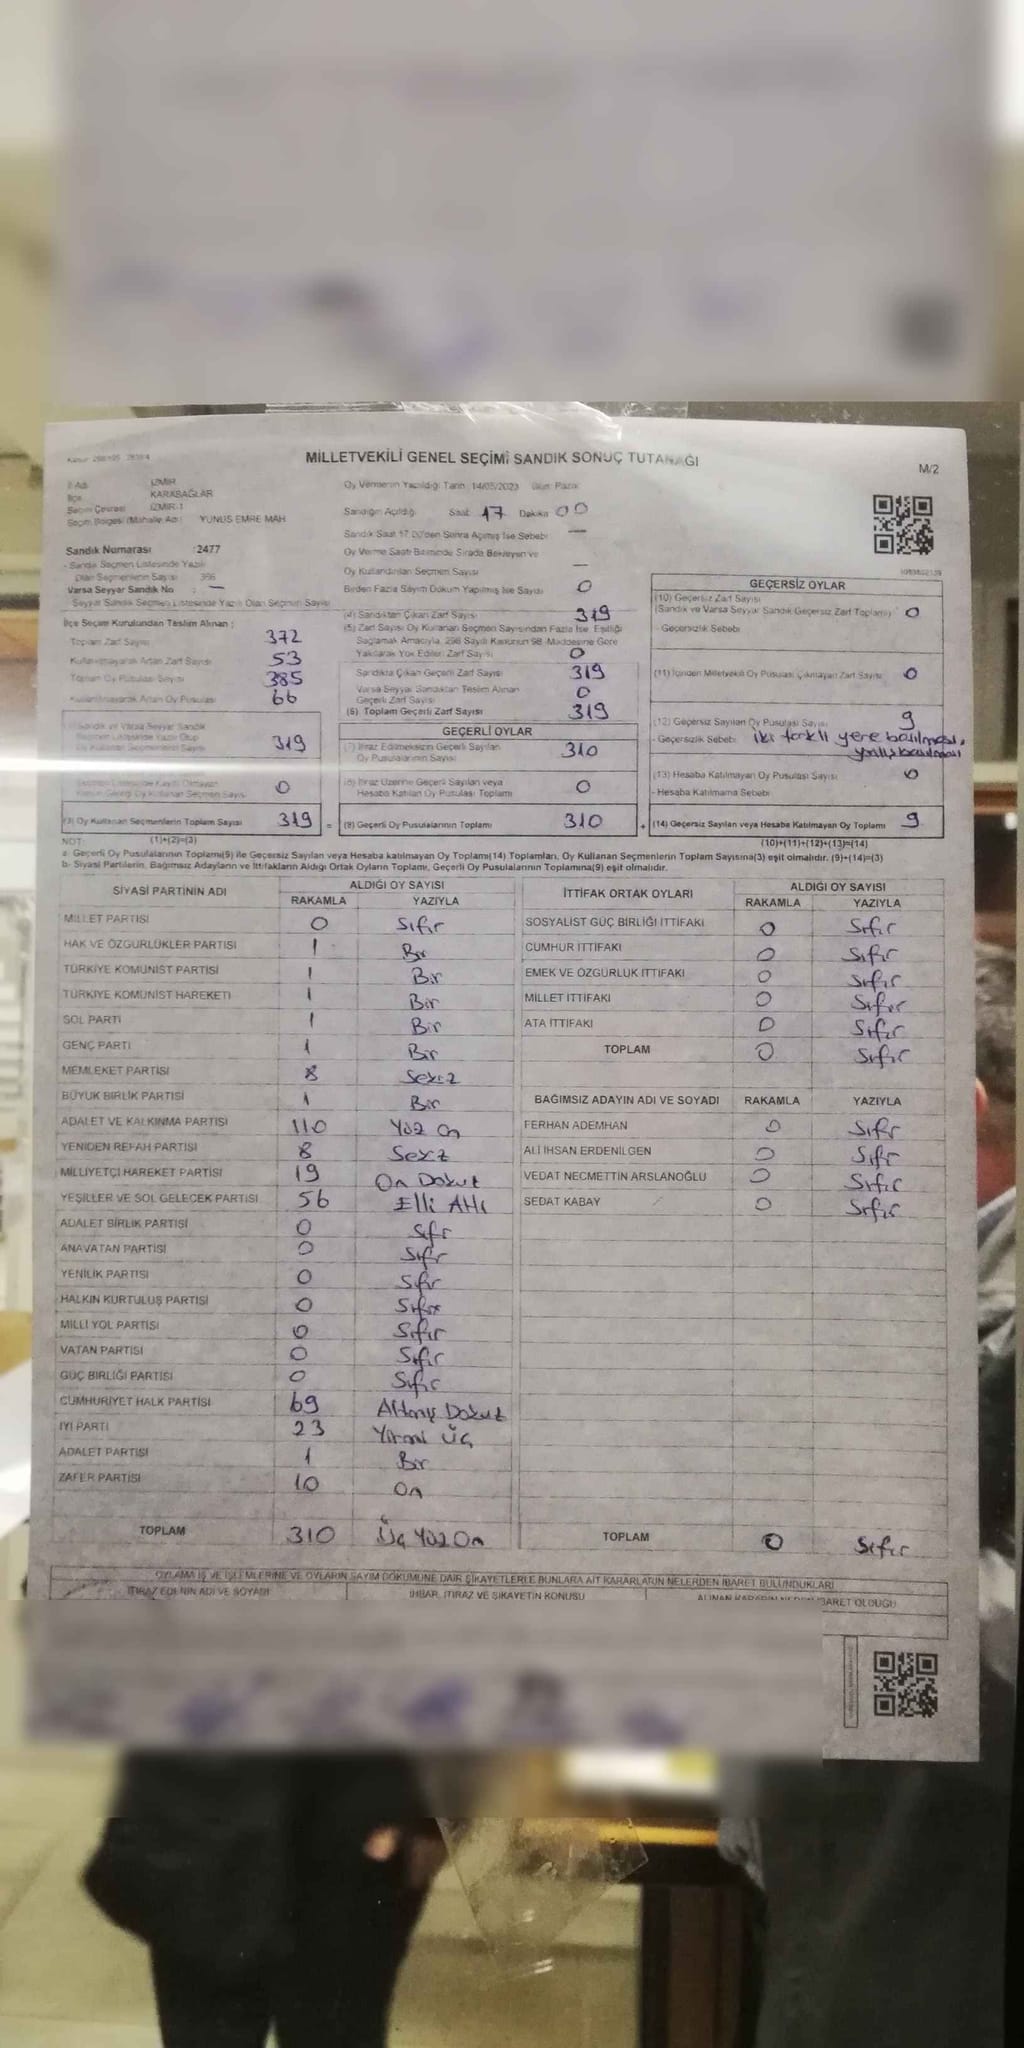 MİLLETVEKİLİ GENEL SEÇİMİ SANDIK SONUÇ TUTANAĞI
M/2
İl Adı İZMİR
İlçe KARABAĞLAR
Seçim Çevresi İZMİR-1
Seçim Bölgesi (Mahalle Adı) YUNUS EMRE MAH
Sandık Numarası :2477
- Sandık Seçmen Listesinde Yazılı
Olan Seçmenlerin Sayısı
Varsa Seyyar Sandık No : —
Seyyar Sandık Seçmen Listesinde Yazılı Olan Seçmen Sayısı
İlçe Seçim Kurulundan Teslim Alınan ;
Toplam Zarf Sayısı 372
Kullanılmayarak Artan Zarf Sayısı 53
Toplam Oy Pusulası Sayısı 385
Kullanılmayarak Artan Oy Pusulası 66
Sandık ve Varsa Seyyar Sandık
Seçmen Listesinde Yazılı Olup
Oy Kullanan Seçmenlerin Sayısı 319
Oy Kullanan Seçmen Sayısı 0
(3) Oy Kullanan Seçmenlerin Toplam Sayısı 319 =
Oy Vermenin Yapıldığı Tarih 14/05/2023 Gün: Pazar
Sandığın Açıldığı Saat 17 Dakika 00
Sandık Saat 17.00'den Sonra Açılmış İse Sebebi —
Oy Verme Saati Bitiminde Sırada Bekleyen ve
Oy Kullandırılan Seçmen Sayısı —
Birden Fazla Sayım Döküm Yapılmış İse Sayısı 0
(4) Sandıktan Çıkan Zarf Sayısı 319
(5) Zarf Sayısı Oy Kullanan Seçmen Sayısından Fazla İse, Eşitliği
Sağlamak Amacıyla, 298 Sayılı Kanunun 98. Maddesine Göre
Yakılarak Yok Edilen Zarf Sayısı 0
Sandıkta Çıkan Geçerli Zarf Sayısı 319
Varsa Seyyar Sandıktan Teslim Alınan
Geçerli Zarf Sayısı 0
(6) Toplam Geçerli Zarf Sayısı 319
GEÇERLİ OYLAR
(7) İtiraz Edilmeksizin Geçerli Sayılan
Oy Pusulalarının Sayısı 310
(8) İtiraz Üzerine Geçerli Sayılan veya
Hesaba Katılan Oy Pusulası Toplamı 0
(9) Geçerli Oy Pusulalarının Toplamı 310 +
GEÇERSİZ OYLAR
(10) Geçersiz Zarf Sayısı
(Sandık ve Varsa Seyyar Sandık Geçersiz Zarf Toplamı) 0
- Geçersizlik Sebebi
(11) İçinden Milletvekili Oy Pusulası Çıkmayan Zarf Sayısı 0
(12) Geçersiz Sayılan Oy Pusulası Sayısı 9
- Geçersizlik Sebebi iki farklı yere basılması,
(13) Hesaba Katılmayan Oy Pusulası Sayısı 0
- Hesaba Katılmama Sebebi
(14) Geçersiz Sayılan veya Hesaba Katılmayan Oy Toplamı 9
NOT: (1)+(2)=(3)
(10)+(11)+(12)+(13)=(14)
a- Geçerli Oy Pusulalarının Toplamı(9) ile Geçersiz Sayılan veya Hesaba katılmayan Oy Toplamı(14) Toplamları, Oy Kullanan Seçmenlerin Toplam Sayısına(3) eşit olmalıdır. (9)+(14)=(3)
b- Siyasi Partilerin, Bağımsız Adayların ve İttifakların Aldığı Ortak Oyların Toplamı, Geçerli Oy Pusulalarının Toplamına(9) eşit olmalıdır.
SİYASİ PARTİNİN ADI ALDIĞI OY SAYISI
RAKAMLA YAZIYLA
MİLLET PARTİSİ 0 Sıfır
HAK VE ÖZGÜRLÜKLER PARTİSİ 1 Bir
TÜRKİYE KOMÜNİST PARTİSİ 1 Bir
TÜRKİYE KOMÜNİST HAREKETİ 1 Bir
SOL PARTİ 1 Bir
GENÇ PARTİ 1 Bir
MEMLEKET PARTİSİ 8 Sekiz
BÜYÜK BİRLİK PARTİSİ 1 Bir
ADALET VE KALKINMA PARTİSİ 110 Yüz On
YENİDEN REFAH PARTİSİ 8 Sekiz
MİLLİYETÇİ HAREKET PARTİSİ 19 On Dokuz
YEŞİLLER VE SOL GELECEK PARTİSİ 56 Elli Altı
ADALET BİRLİK PARTİSİ 0 Sıfır
ANAVATAN PARTİSİ 0 Sıfır
YENİLİK PARTİSİ 0 Sıfır
HALKIN KURTULUŞ PARTİSİ 0 Sıfır
MİLLİ YOL PARTİSİ 0 Sıfır
VATAN PARTİSİ 0 Sıfır
GÜÇ BİRLİĞİ PARTİSİ 0 Sıfır
CUMHURİYET HALK PARTİSİ 69 Altmış Dokuz
İYİ PARTİ 23 Yirmi Üç
ADALET PARTİSİ 1 Bir
ZAFER PARTİSİ 10 On
TOPLAM 310 Üç Yüz On
İTTİFAK ORTAK OYLARI ALDIĞI OY SAYISI
RAKAMLA YAZIYLA
SOSYALİST GÜÇ BİRLİĞİ İTTİFAKI 0 Sıfır
CUMHUR İTTİFAKI 0 Sıfır
EMEK VE ÖZGÜRLÜK İTTİFAKI 0 Sıfır
MİLLET İTTİFAKI 0 Sıfır
ATA İTTİFAKI 0 Sıfır
TOPLAM 0 Sıfır
BAĞIMSIZ ADAYIN ADI VE SOYADI RAKAMLA YAZIYLA
FERHAN ADEMHAN 0 Sıfır
ALİ İHSAN ERDENİLGEN 0 Sıfır
VEDAT NECMETTİN ARSLANOĞLU 0 Sıfır
SEDAT KABAY 0 Sıfır
TOPLAM 0 Sıfır
OYLAMA İŞ VE İŞLEMLERİNE VE OYLARIN SAYIM DÖKÜMÜNE DAİR ŞİKAYETLERLE BUNLARA AİT KARARLARIN NELERDEN İBARET BULUNDUKLARI
İTİRAZ EDENİN ADI VE SOYADI İHBAR, İTİRAZ VE ŞİKAYETİN KONUSU ALINAN KARARIN NEDEN İBARET OLDUĞU